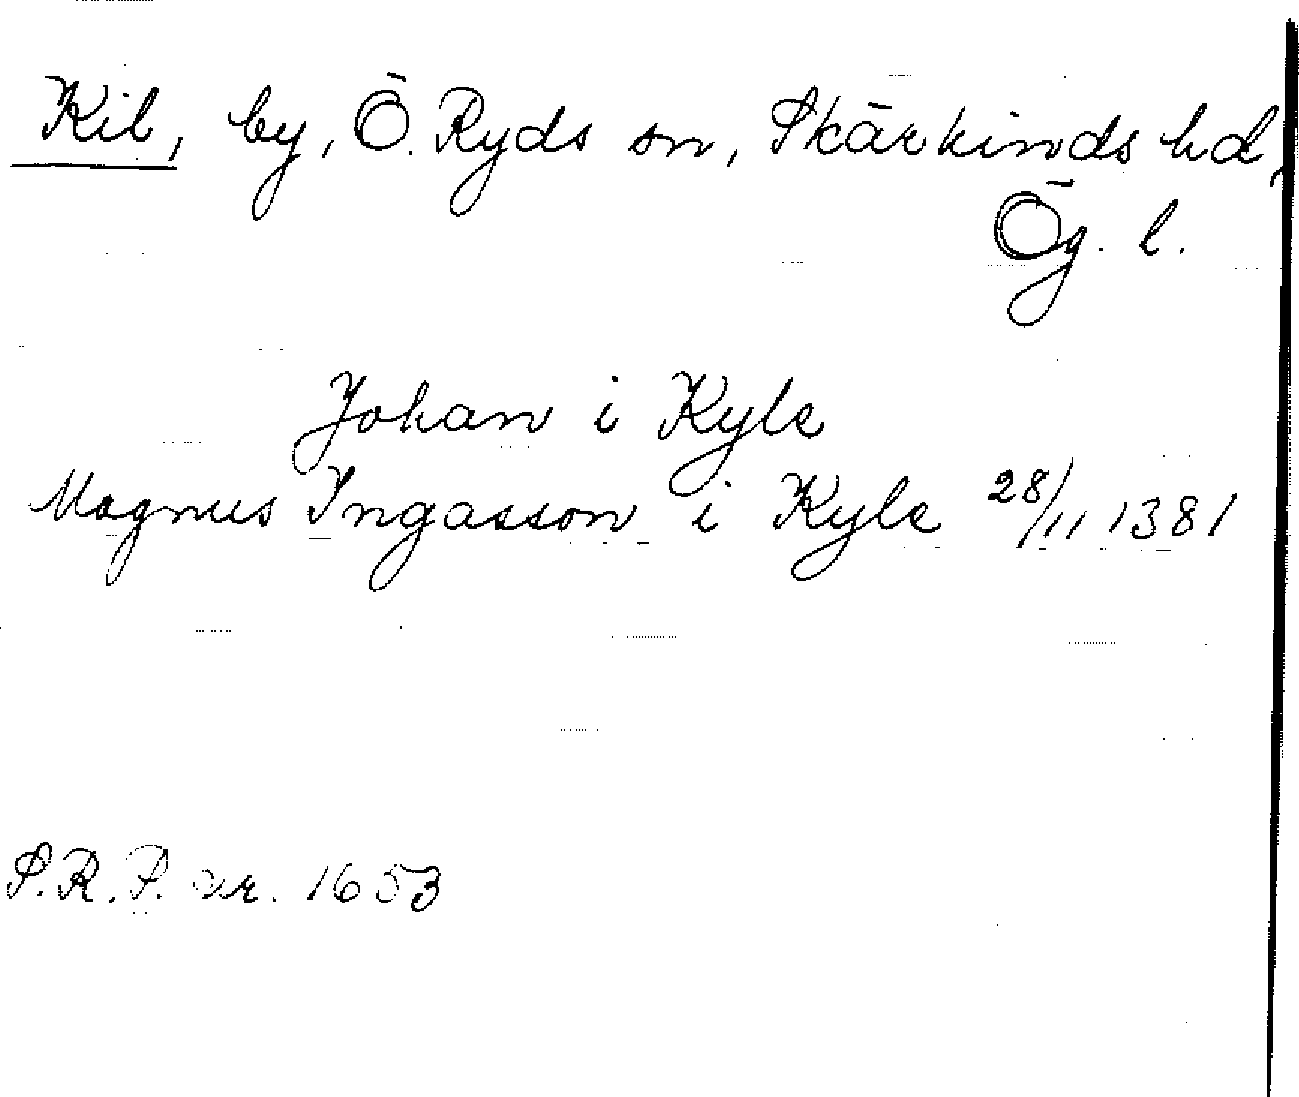 Kil, by, Ö. Ryds sn, Skärkinds hd,
Ög. l.
Johan i Kyle
Magnus Ingasson i Kyle 28/11 1381
S.R.P. nr. 1653